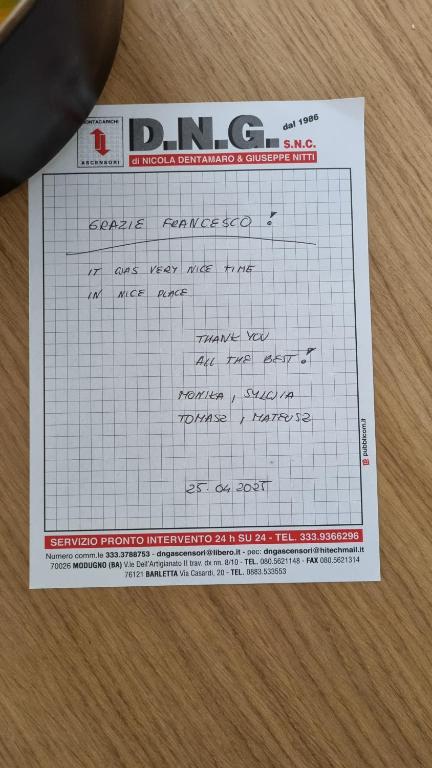 MONTACARICHI
ASCENSORI
D.N.G. dal 1986
S.N.C.
di NICOLA DENTAMARO & GIUSEPPE NITTI
GRAZIE FRANCESCO !
IT WAS VERY NICE TIME
IN NICE PLACE
THANK YOU
ALL THE BEST !
MONIKA , SYLWIA
TOMASZ , MATEUSZ
25.04.2025
pubblicom.it
SERVIZIO PRONTO INTERVENTO 24 h SU 24 - TEL. 333.9366296
Numero comm.le 333.3788753 - dngascensori@libero.it - pec: dngascensori@hitechmail.it
70026 MODUGNO (BA) V.le Dell'Artigianato II trav. dx nn. 8/10 - TEL. 080.5621148 - FAX 080.5621314
76121 BARLETTA Via Casardi, 20 - TEL. 0883.533553